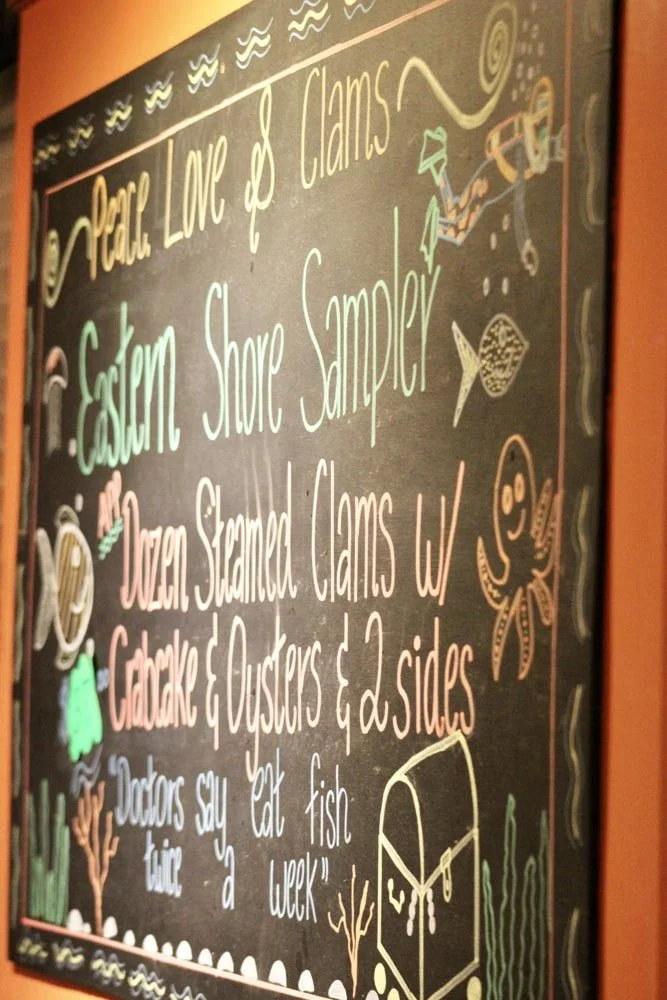 Peace, Love & Clams
Eastern Shore Sampler
APP
Dozen Steamed Clams w/
Crabcake & Oysters & 2 sides
"Doctors say eat fish
twice a week"